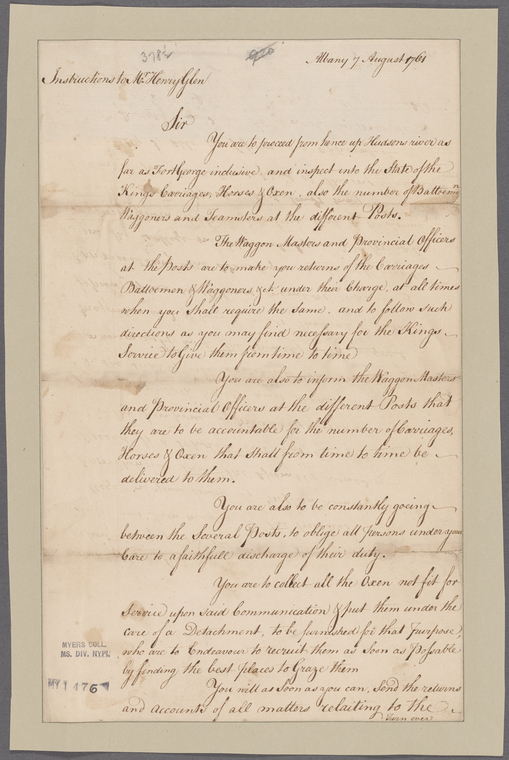 378½
Albany 7 August 1761
Instructions to Mr. Henry Glen
Sir
You are to proceed from hence up Hudsons river as
far as Fort George inclusive, and inspect into the State of the
Kings Carriages, Horses & Oxen, also the number of Battoemn
Waggoners and Teamsters at the different Posts.
The Waggon Masters and Provincial Officers
at the Posts are to make you returns of the Carriages
Battoemen & Waggoners, &c. under their Charge, at all times
when you Shall require the Same, and to follow such
directions as you may find necessary for the Kings
Service to Give them from time to time
You are also to inform the Waggon Masters
and Provincial Officers at the different Posts that
they are to be accountable for the number of Carriages,
Horses & Oxen that Shall from time to time be
delivered to them.
You are also to be constantly going
between the Several Posts, to oblige all persons under your
Care to a faithfull discharge of their duty.
You are to collect all the Oxen not fit for
Service upon Said Communication & put them under the
care of a Detachment, to be furnished for that Purpose,
who are to Endeavour to recruit them as Soon as Possable
by finding the best places to Graze them
You will as soon as you can, Send the returns
and accounts of all matters relaiting to the
Turn over
MYERS COLL.
MS. DIV. NYPL
1476